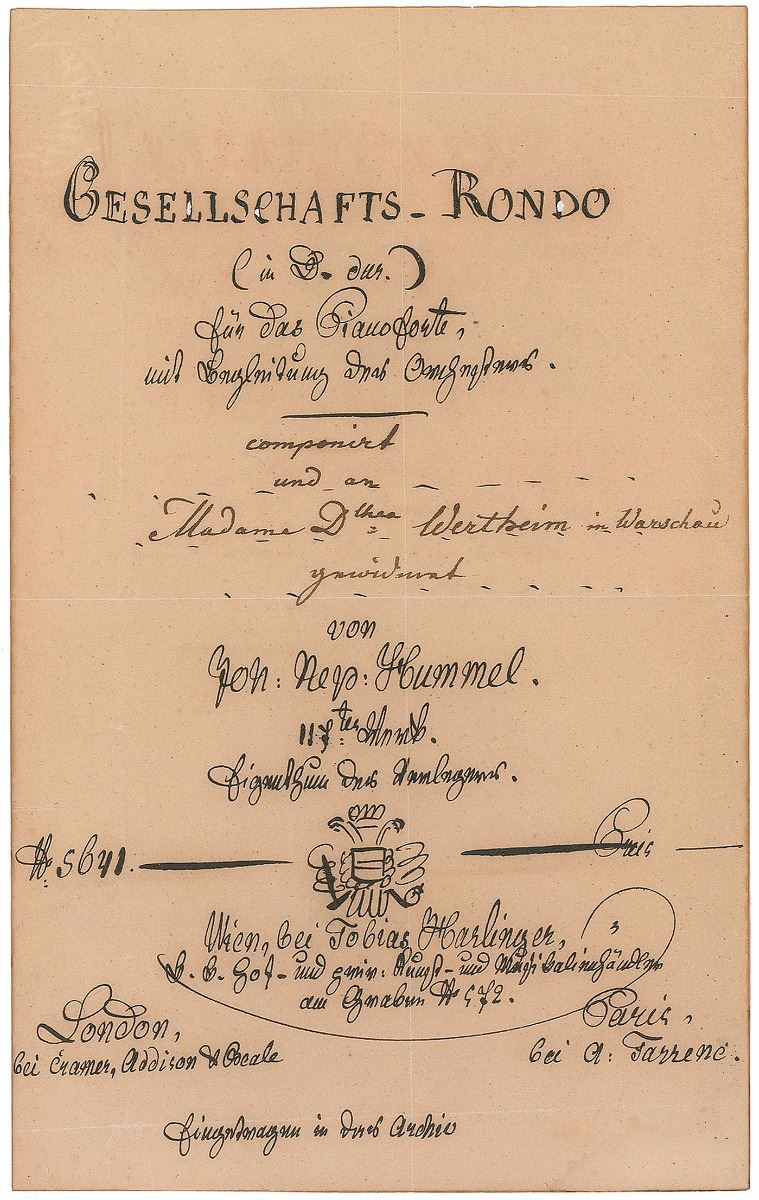 GESELLSCHAFTS-RONDO
(in D. dur.)
für das Pianoforte,
mit Begleitung des Orchesters.
componirt
und an
Madame Dthea Wertheim in Warschau
gewidmet
von
Joh: Nep: Hummel.
117tes Werk.
Eigenthum des Verlegers.
No 5641. Preis
Wien, bei Tobias Haslinger,
k. k. Hof- und priv: Kunst- und Musikalienhändler
am Graben No 572.
London,
bei Cramer, Addison & Beale
Paris,
bei A: Farrenc.
Eingetragen in das Archiv